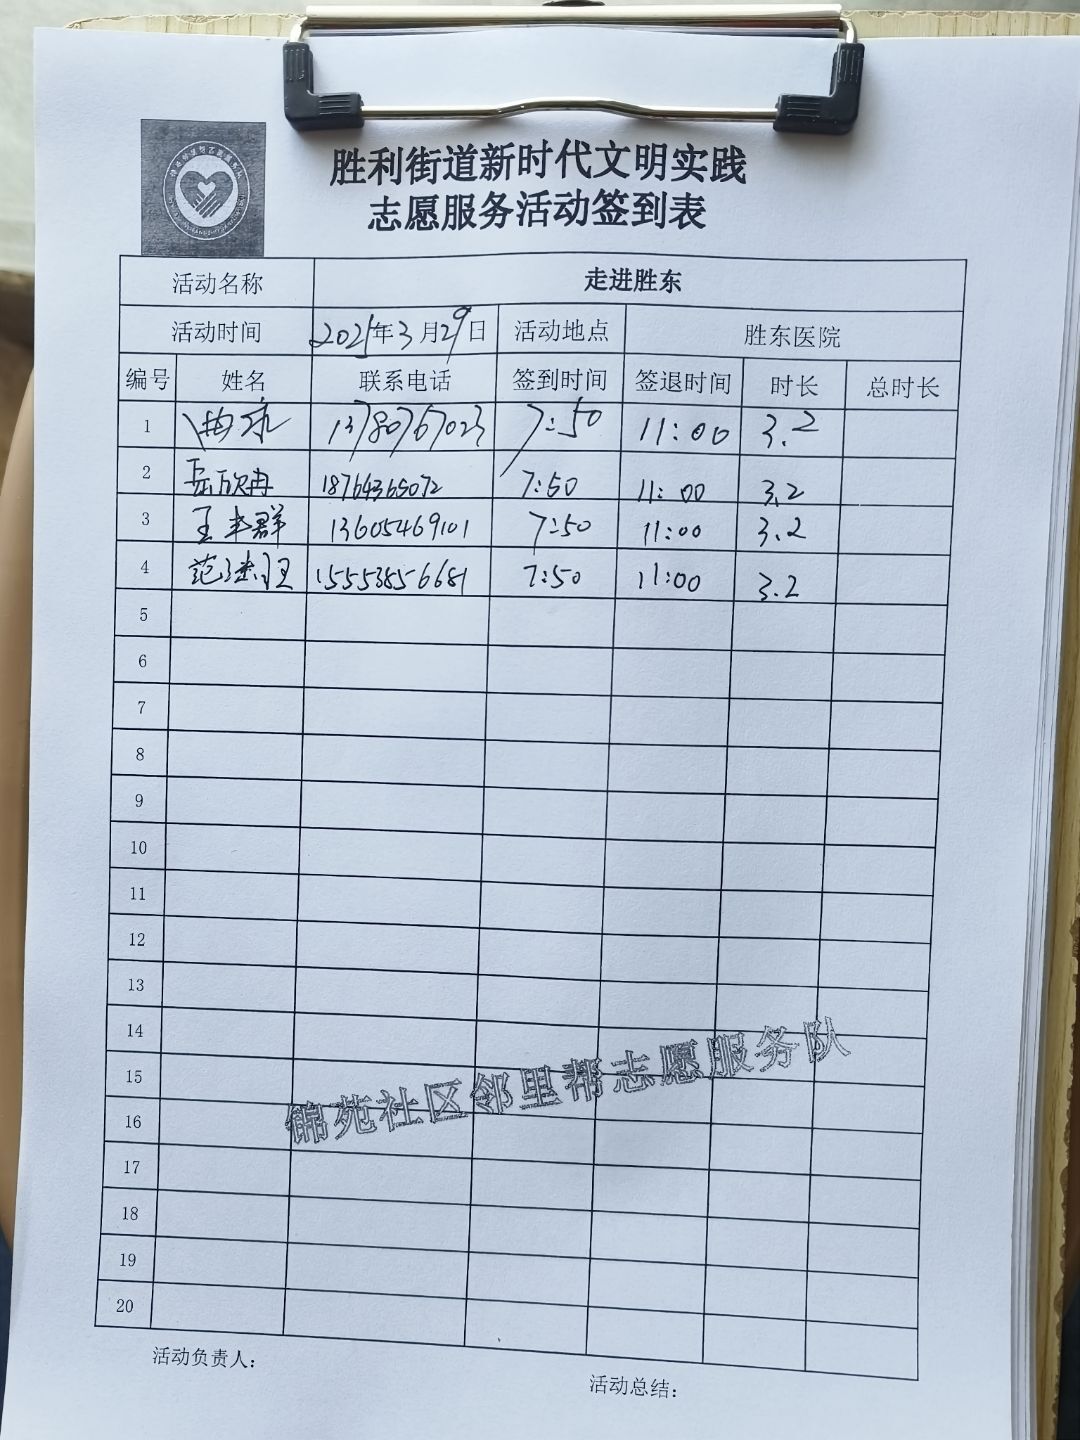 胜利街道新时代文明实践
志愿服务活动签到表
活动名称 走进胜东
活动时间 2025年3月29日 活动地点 胜东医院
编号 姓名 联系电话 签到时间 签退时间 时长 总时长
1 13780767023 7:50 11:00 3.2
2 岳欣冉 18764365072 7:50 11:00 3.2
3 王丰群 13605469101 7:50 11:00 3.2
4 范 15553856681 7:50 11:00 3.2
5
6
7
8
9
10
11
12
13
14
15
16
17
18
19
20
锦苑社区邻里帮志愿服务队
活动负责人：
活动总结：